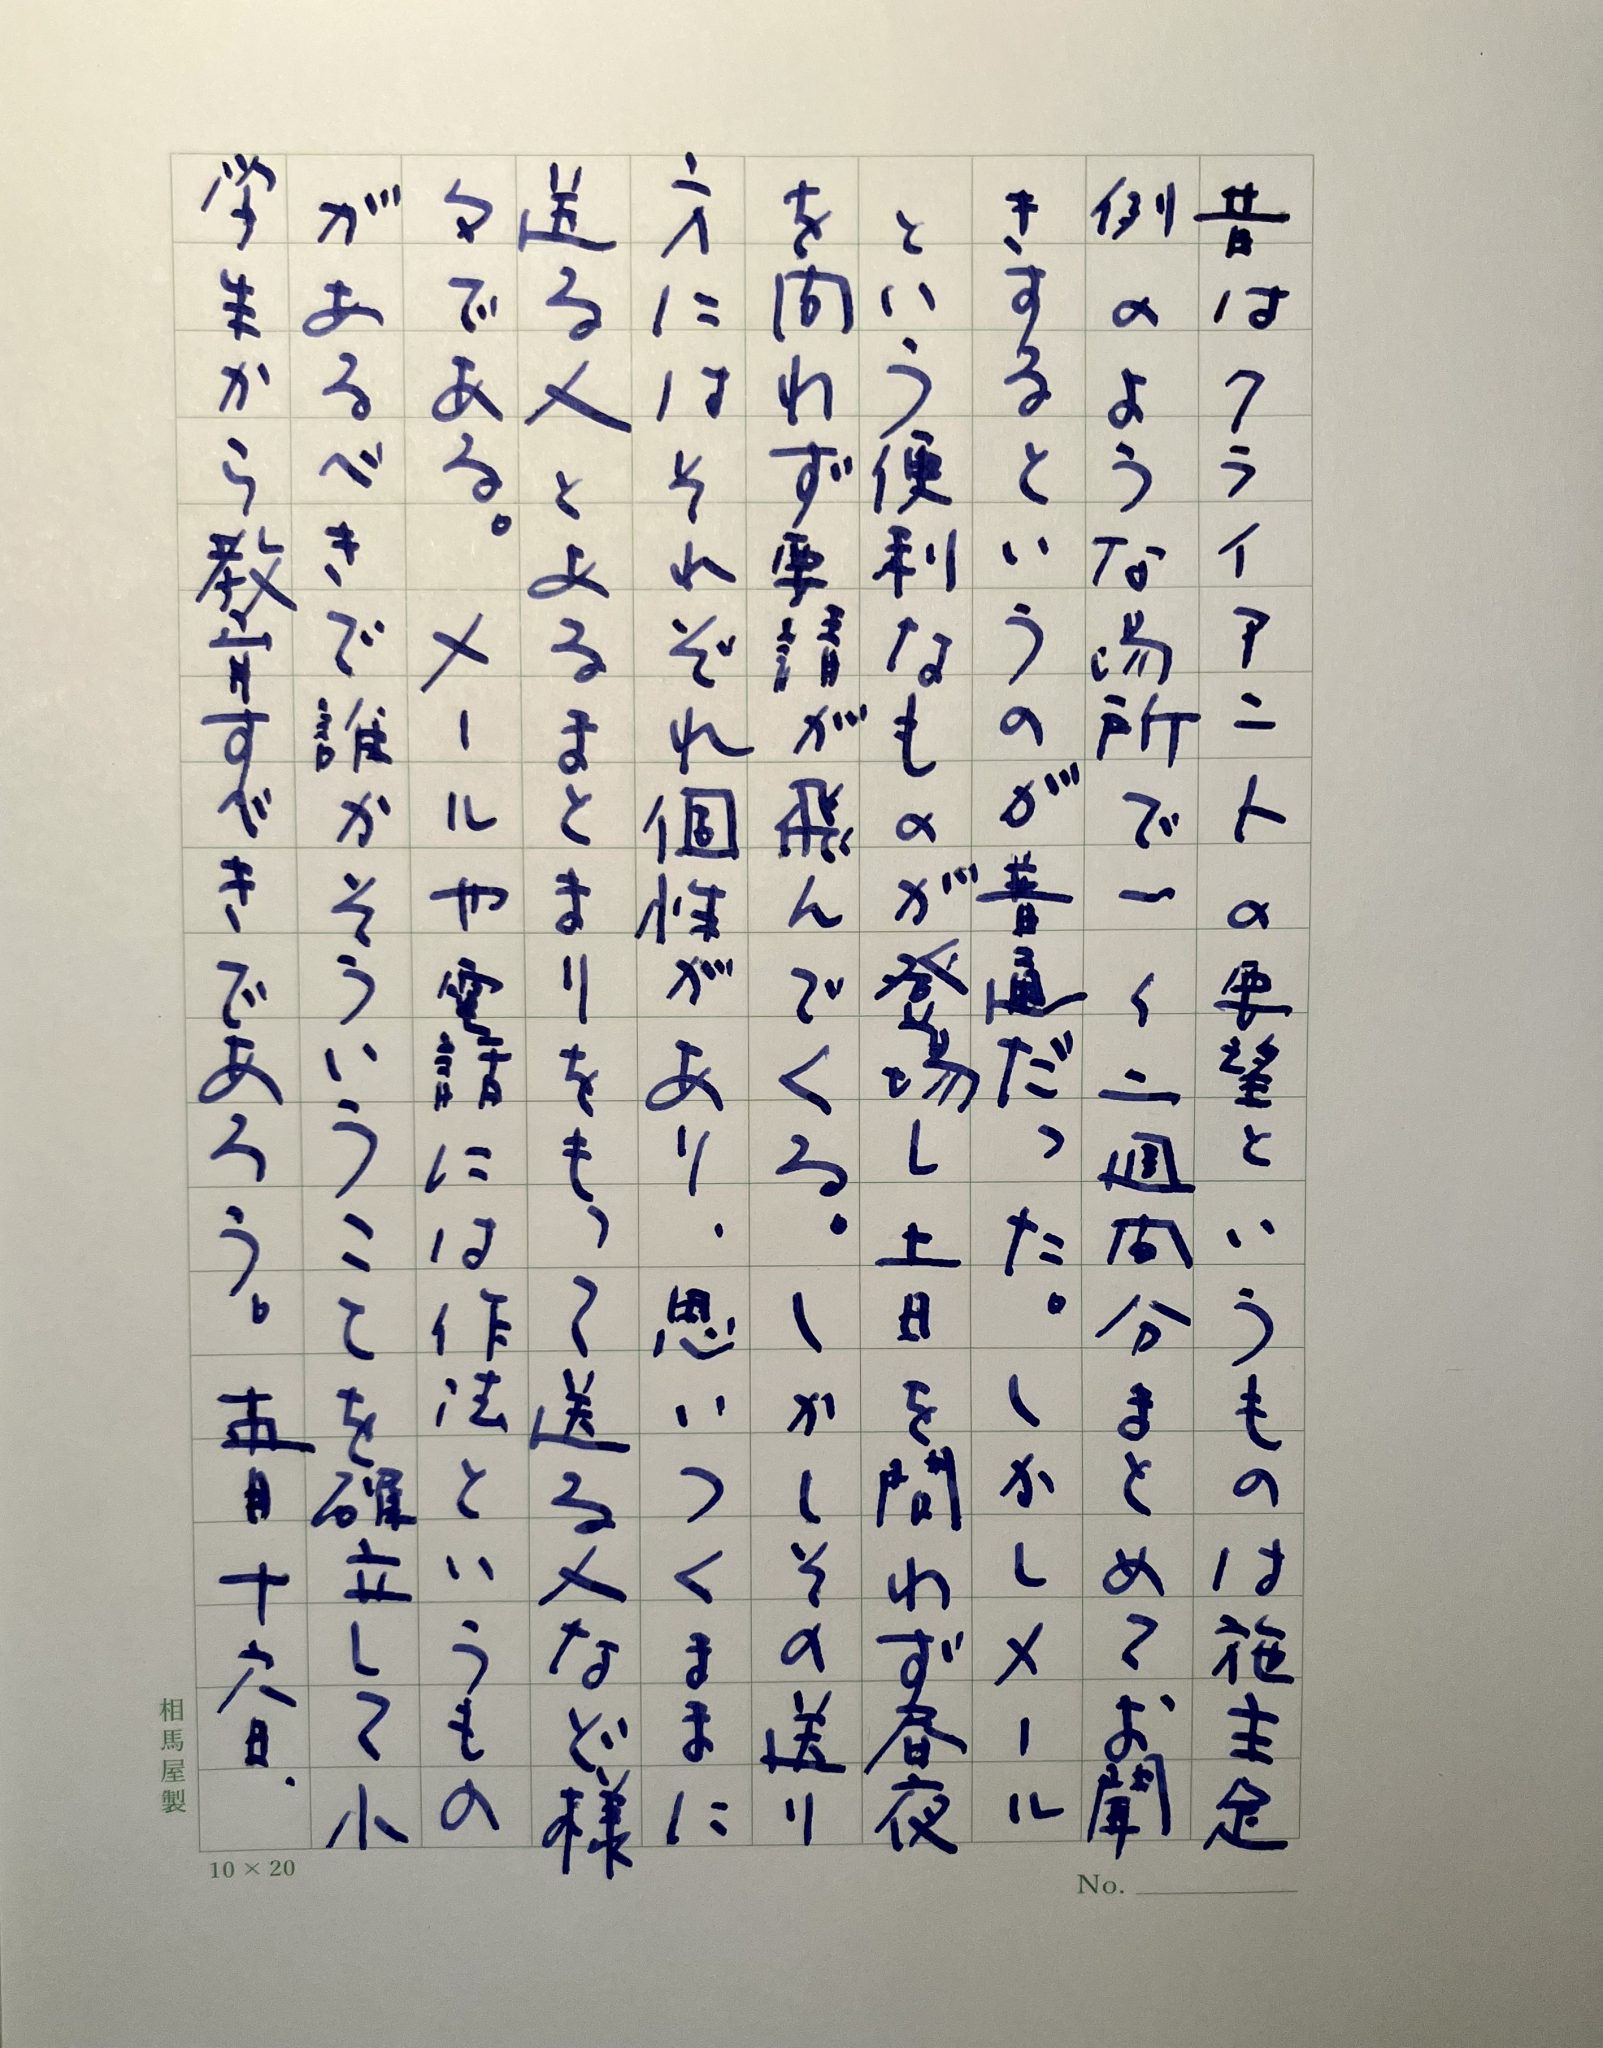 昔はクライアントの要望というものは施主定
例のような場所で一〜二週間分まとめてお聞
きするというのが普通だった。しかしメール
という便利なものが登場し土日を問わず昼夜
を問わず要請が飛んでくる。しかしその送り
方にはそれぞれ個性があり、思いつくままに
送る人とあるまとまりをもって送る人など様
々である。メールや電話には作法というもの
があるべきで誰かそういうことを確立して小
学生から教育すべきであろう。五月十六日、
相馬屋製
10×20
No.